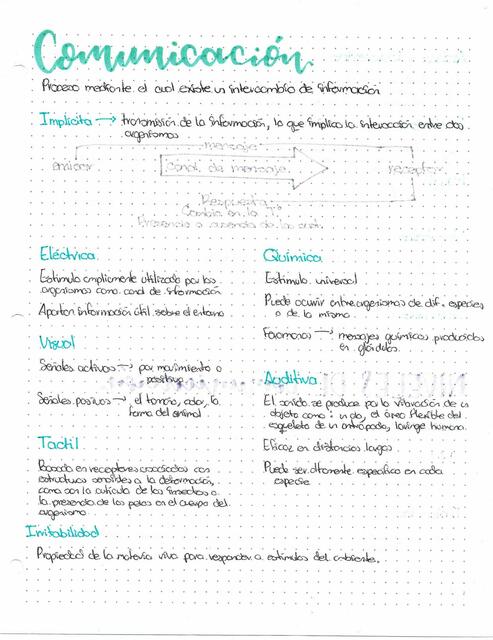 Comunicación
Proceso mediante el cual existe un intercambio de información
Implícita → transmisión de la información, lo que implica la interacción entre dos
organismos
mensaje
emisor
Canal de mensaje
receptor
Respuesta:
Cambia en la T°
Presencia o ausencia de la
Eléctrica
Estímulo ampliamente utilizado por los
organismos como canal de información
Aportan información útil sobre el entorno
Química
Estímulo universal
Puede ocurrir entre organismos de dif. especies
o de la misma
Feromonas → mensajes químicos producidos
en glándulas.
Visual
Señales activas → por movimiento o
positiva
Señales pasivas → el tamaño, color, la
forma del animal
Auditiva
El sonido se produce por la vibración de un
objeto como: un ala, el área flexible del
esqueleto de un artrópodo, laringe humana.
Eficaz en distancias largas
Puede ser altamente específico en cada
especie
Tactil
Basada en receptores asociados con
estructuras sensibles a la deformación,
como son la cutícula de los insectos o
la presencia de los pelos en el cuerpo del
organismo
Irritabilidad
Propiedad de la materia viva para responder a estímulos del ambiente.